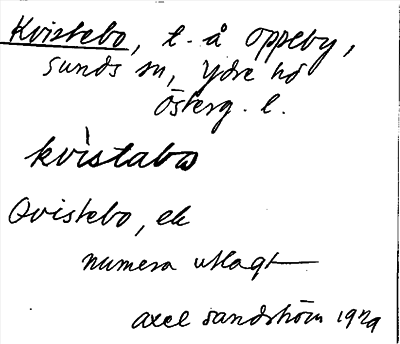 Kvistebo, l. å Oppeby,
Sunds sn, Ydre hd
Österg. l.
kvìstabω
Qvistebo, ek
numera utlagt
Axel Sandström 1929